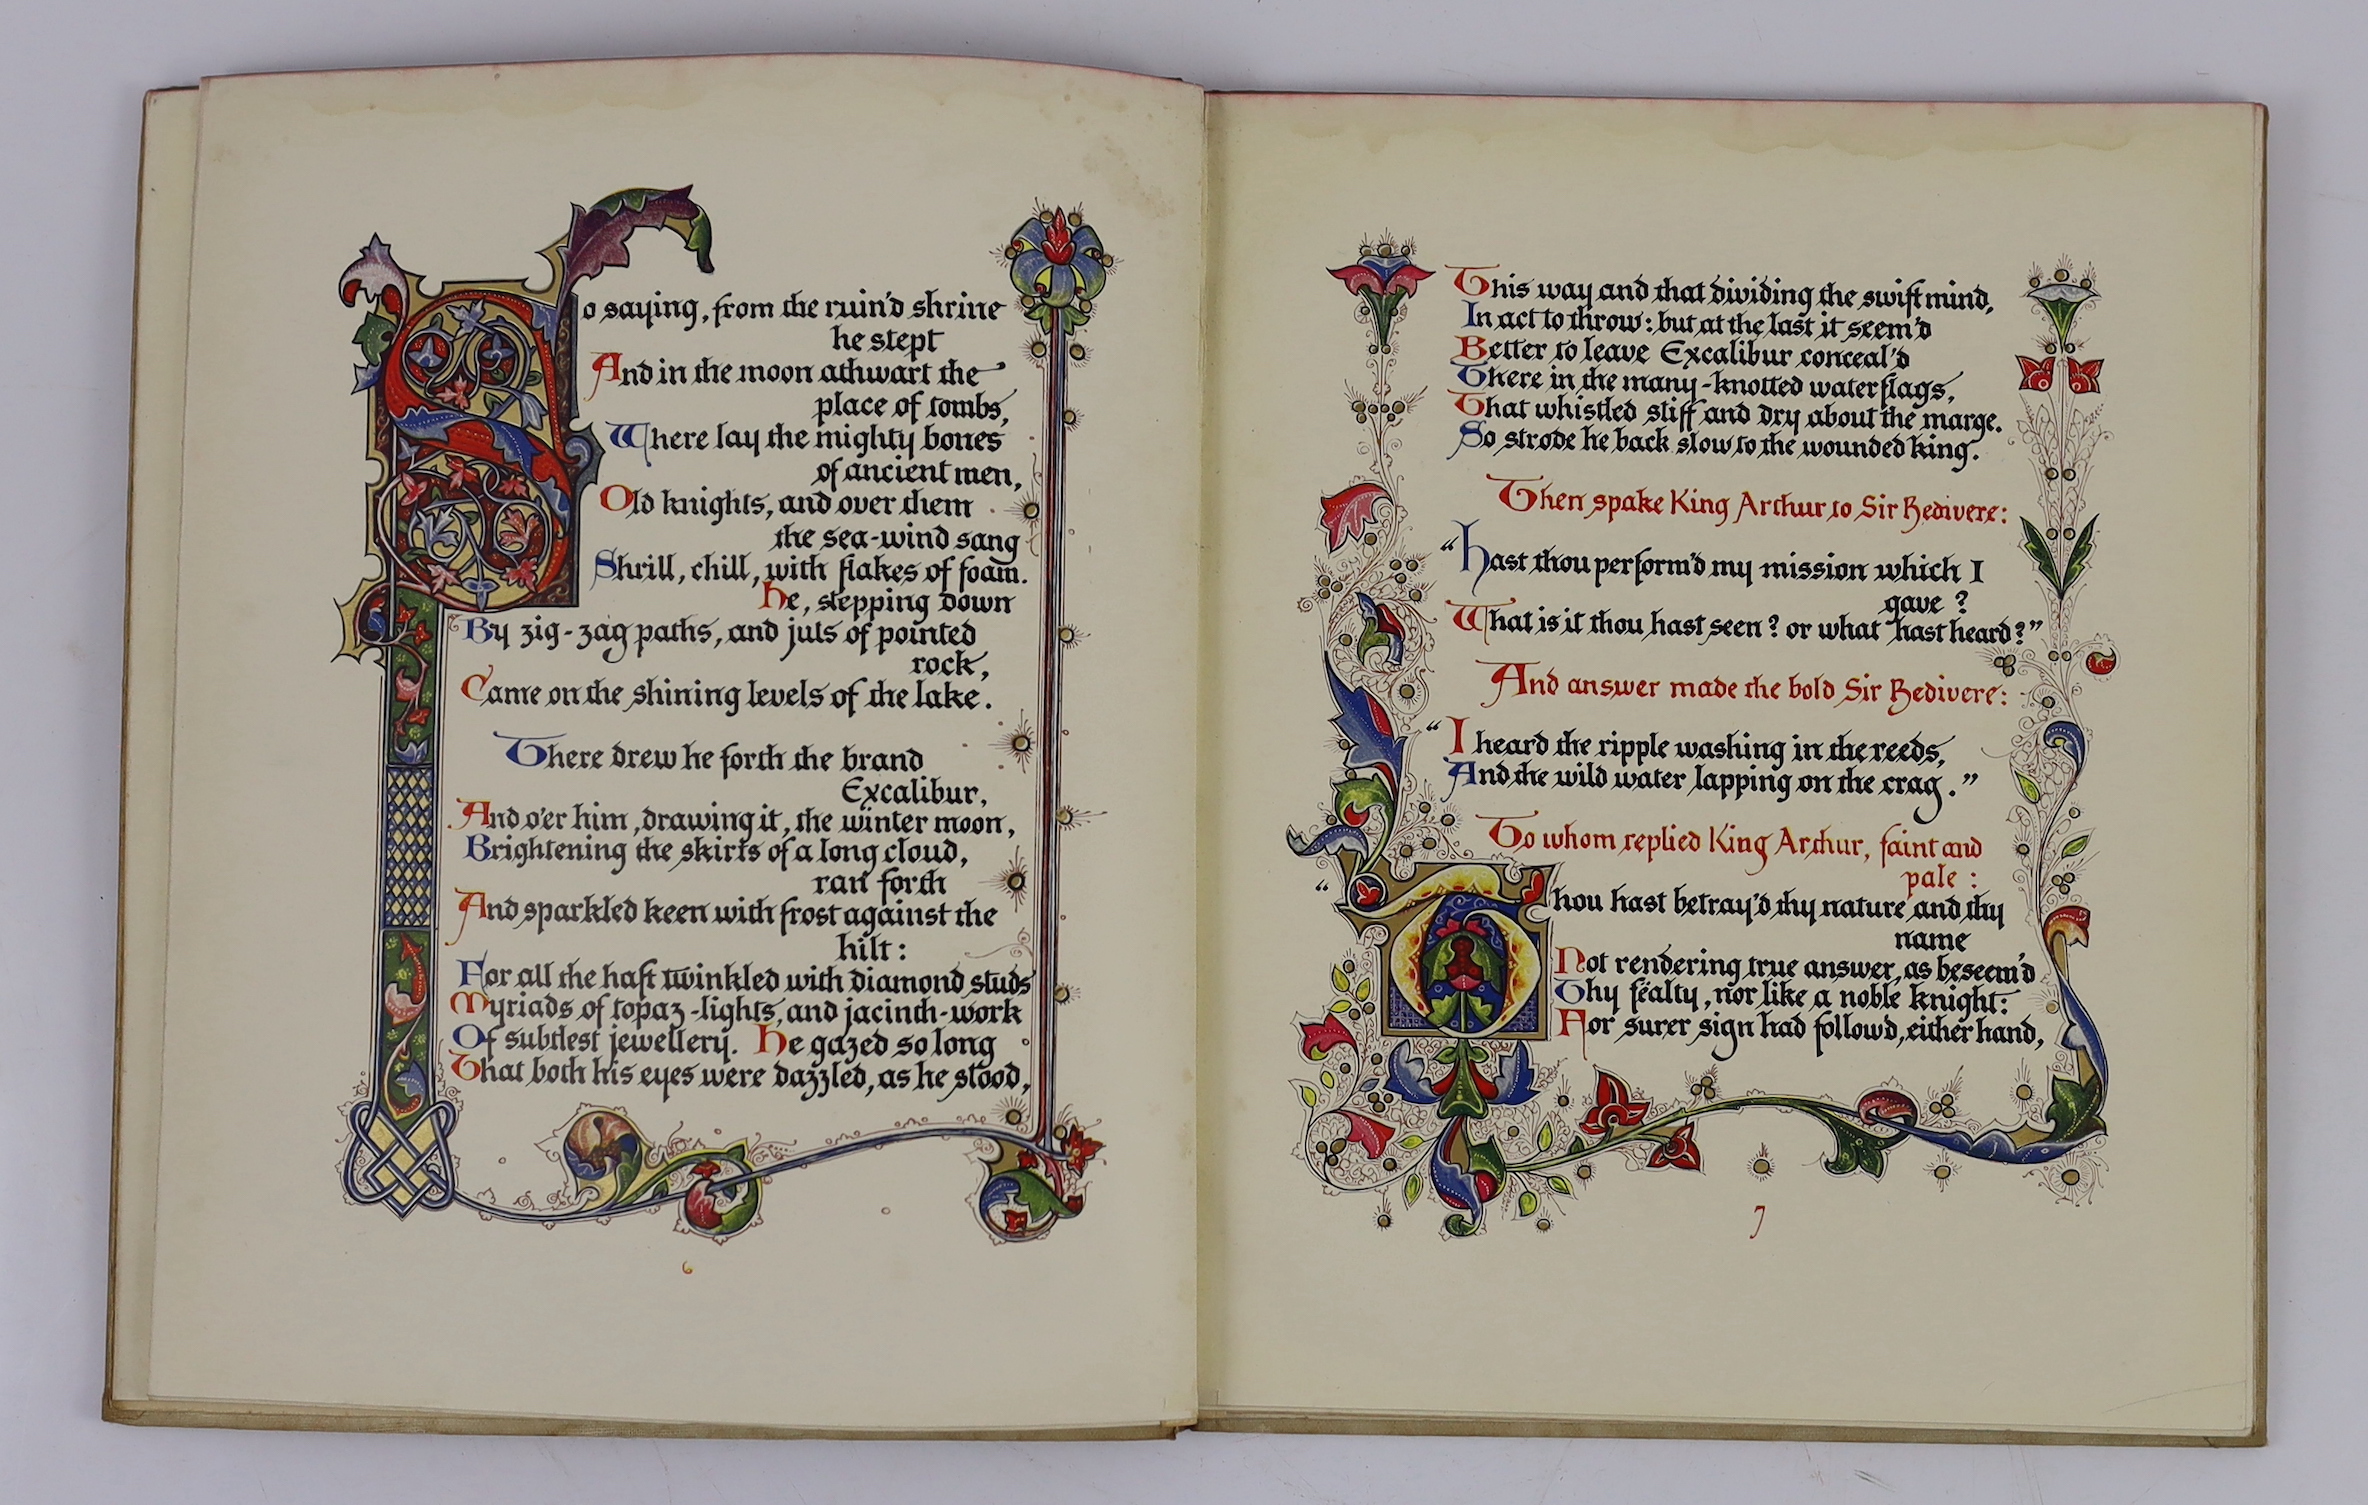 So saying, from the ruin'd shrine
he stept
And in the moon athwart the
place of tombs,
Where lay the mighty bones
of ancient men,
Old knights, and over them
the sea-wind sang
Shrill, chill, with flakes of foam.
He, stepping down
By zig-zag paths, and juts of pointed
rock,
Came on the shining levels of the lake.
There drew he forth the brand
Excalibur,
And o'er him, drawing it, the winter moon,
Brightening the skirts of a long cloud,
ran forth
And sparkled keen with frost against the
hilt:
For all the haft twinkled with diamond studs
Myriads of topaz-lights, and jacinth-work
Of subtlest jewellery. He gazed so long
That both his eyes were dazzled, as he stood,
6
This way and that dividing the swift mind,
In act to throw: but at the last it seem'd
Better to leave Excalibur conceal'd
There in the many-knotted waterflags,
That whistled stiff and dry about the marge.
So strode he back slow to the wounded king.
Then spake King Arthur to Sir Bedivere:
"Hast thou perform'd my mission which I
gave?
What is it thou hast seen? or what hast heard?"
And answer made the bold Sir Bedivere:
"I heard the ripple washing in the reeds,
And the wild water lapping on the crag."
To whom replied King Arthur, faint and
pale:
"Thou hast betray'd thy nature and thy
name
Not rendering true answer, as beseem'd
Thy fëalty, nor like a noble knight:
For surer sign had follow'd, either hand,
7